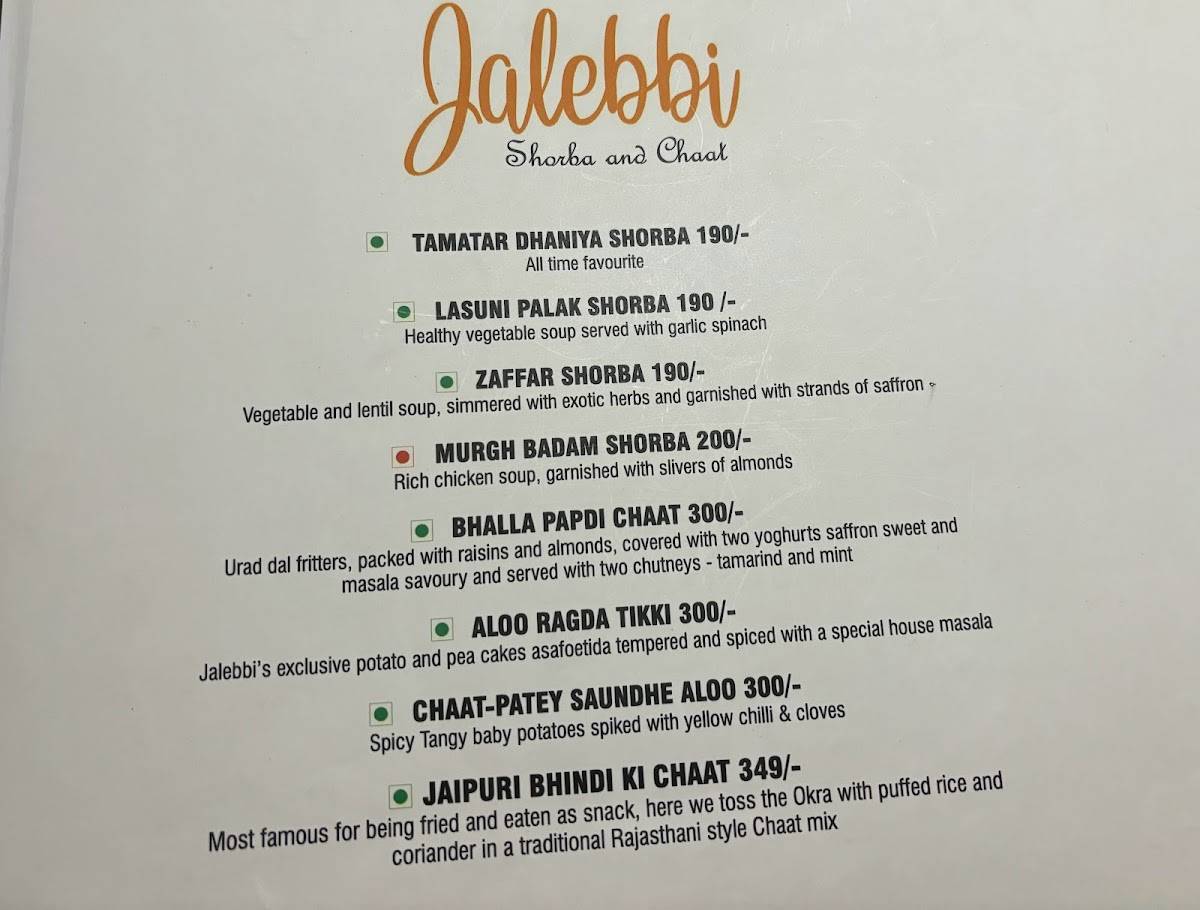 Jalebbi
Shorba and Chaat
TAMATAR DHANIYA SHORBA 190/-
All time favourite
LASUNI PALAK SHORBA 190 /-
Healthy vegetable soup served with garlic spinach
ZAFFAR SHORBA 190/-
Vegetable and lentil soup, simmered with exotic herbs and garnished with strands of saffron
MURGH BADAM SHORBA 200/-
Rich chicken soup, garnished with slivers of almonds
BHALLA PAPDI CHAAT 300/-
Urad dal fritters, packed with raisins and almonds, covered with two yoghurts saffron sweet and
masala savoury and served with two chutneys - tamarind and mint
ALOO RAGDA TIKKI 300/-
Jalebbi's exclusive potato and pea cakes asafoetida tempered and spiced with a special house masala
CHAAT-PATEY SAUNDHE ALOO 300/-
Spicy Tangy baby potatoes spiked with yellow chilli & cloves
JAIPURI BHINDI KI CHAAT 349/-
Most famous for being fried and eaten as snack, here we toss the Okra with puffed rice and
coriander in a traditional Rajasthani style Chaat mix